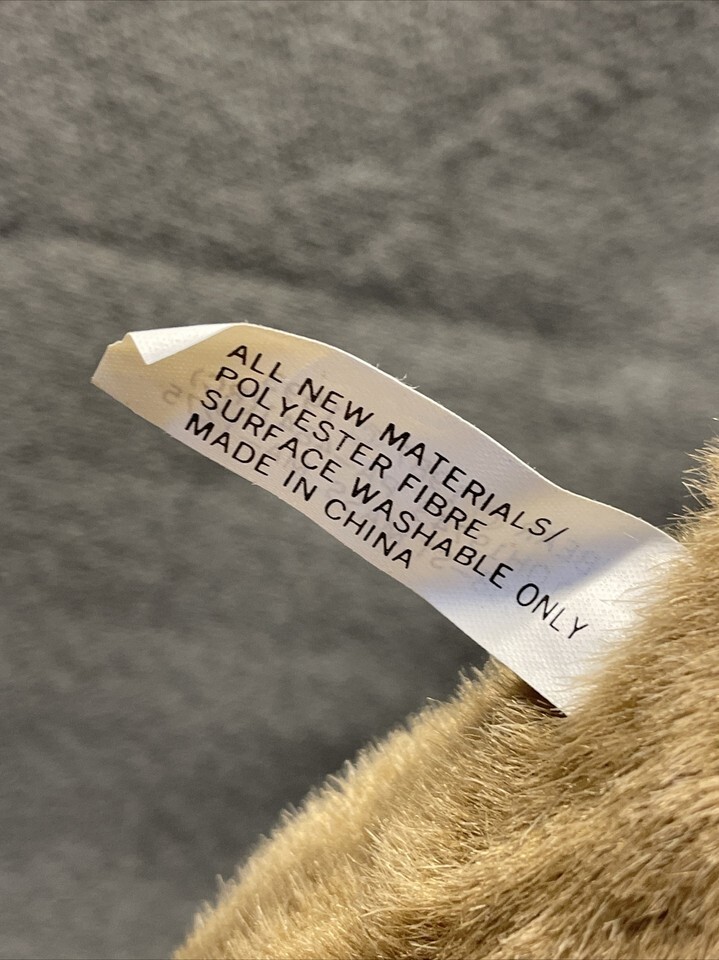 ALL NEW MATERIALS/
POLYESTER FIBRE
SURFACE WASHABLE ONLY
MADE IN CHINA